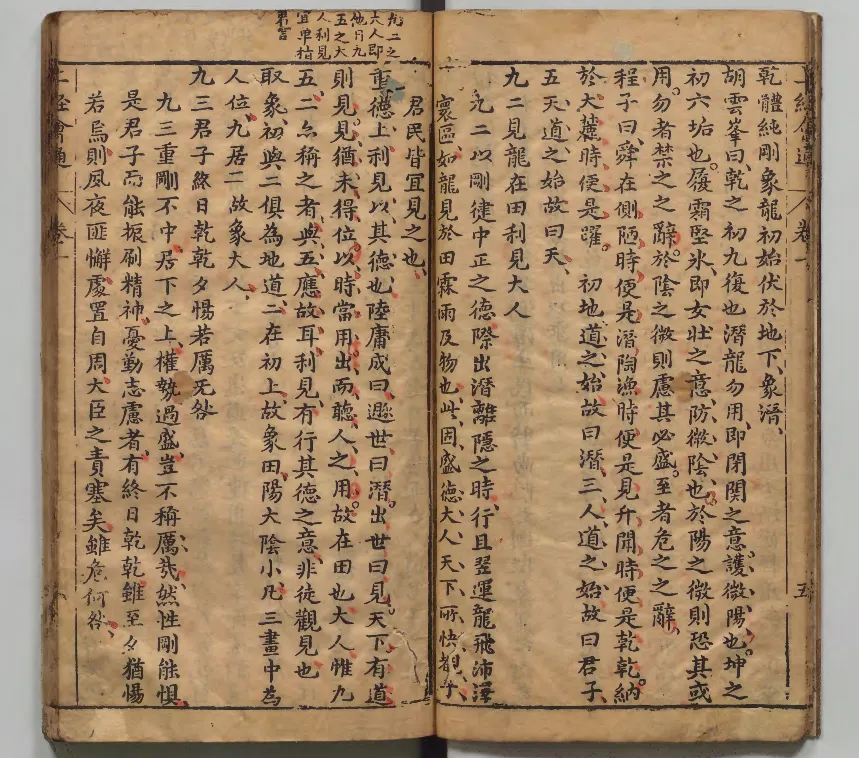 乾體純剛象龍初始伏於地下象潛
胡雲峯曰乾之初九復也潛龍勿用即閉関之意護微陽也坤之
初六垢也履霜堅氷即女壯之意防微陰也於陽之微則恐其或
用勿者禁之之辭於陰之微則慮其必盛至者危之之辭
程子曰舜在側陋時便是潛陶漁時便是見升聞時便是乾乾納
於大麓時便是躍 初地道之始故曰潛三人道之始故曰君子
五天道之始故曰天
九二見龍在田利見大人
九二以剛健中正之德際出潛離隱之時行且翌運龍飛沛澤
寰區如龍見於田霖雨及物也此固盛德大人天下所快覩乎
五
九二之
大人即
他日九
五之大
人利見
宜單指
君言
君民皆宜見之也
重德上利見以其德也陸庸成曰遯世曰潛出世曰見天下有道
則見見猶未得位以時當用出而聽人之用故在田也大人惟九
五二亦稱之者與五應故耳利見有行其德之意非徒觀見也
取象初與二俱為地道二在初上故象田陽大陰小凡三畫中為
人位九居二故象大人
九三君子終日乾乾夕惕若厲无咎
九三重剛不中居下之上權勢過盛豈不稱厲㦲然性剛能惧
是君子而能振刷精神憂勤志慮者有終日乾乾雖至夕猶惕
若焉則夙夜匪懈處置自周大臣之責塞矣雖危何咎
二經會通 卷一